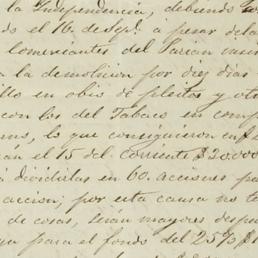 la Independencia, debiendo
el 16. de Sepe. á pesar de la
comerciantes del
a la demolicion por diez dias
en obis de pleitos y otr
con los del Tabaco en comp
lo que consiguieron en
el 15 del corriente $20000
á dividirlas en 60. acciones pa
accion; por esta causa no te
de cosas, serán mayores despu
para el fondo del 25%